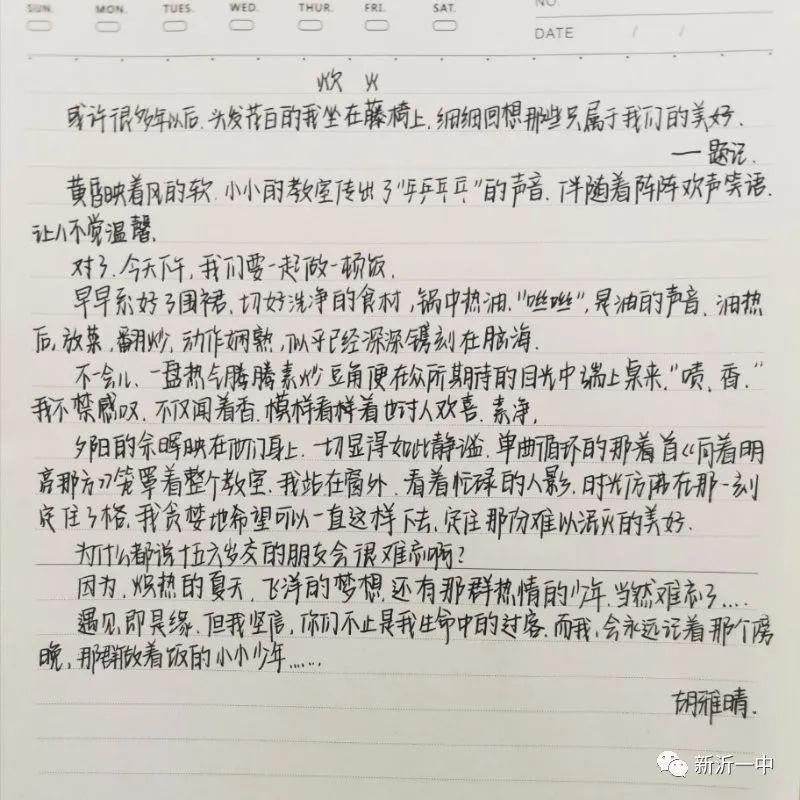 SUN. MON. TUES. WED. THUR. FRI. SAT.
NO.
DATE / /
炊火
或许很多年以后,头发花白的我坐在藤椅上,细细回想那些只属于我们的美好.
——题记.
黄昏映着风的软.小小的教室传出了“乒乒乓乓”的声音.伴随着阵阵欢声笑语.
让人不觉温馨.
对了.今天下午,我们要一起做一顿饭.
早早系好了围裙.切好洗净的食材,锅中热油.“咝咝”,是油的声音.油热
后,放菜,翻炒,动作娴熟,似乎已经深深镌刻在脑海.
不一会儿.一盘热气腾腾素炒豆角便在众所期待的目光中端上桌来.“啧,香.”
我不禁感叹.不仅闻着香.模样看样着也讨人欢喜.素净.
夕阳的余晖映在他们身上.一切显得如此静谧.单曲循环的那着首《向着明
亮那方》笼罩着整个教室.我站在窗外.看着忙碌的人影.时光仿佛在那一刻
定住了格.我贪婪地希望可以一直这样下去,定住那份难以泯灭的美好.
为什么都说十五六岁交的朋友会很难忘啊?
因为,炽热的夏天,飞洋的梦想.还有那群热情的少年.当然难忘了....
遇见,即是缘.但我坚信,你们不止是我生命中的过客.而我,会永远记着那个傍
晚,那群做着饭的小小少年......
胡雅晴.
新沂一中